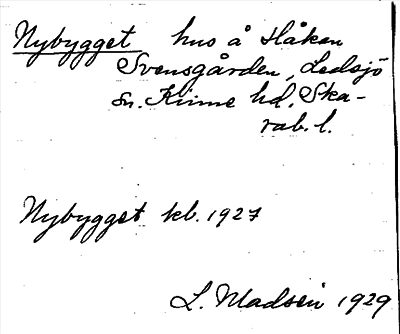 Nybygget hus å Håken
Svensgården, Ledsjö
sn. Kinne hd. Ska-
rab. l.
Nybygget kb. 1927
L. Madsen 1929